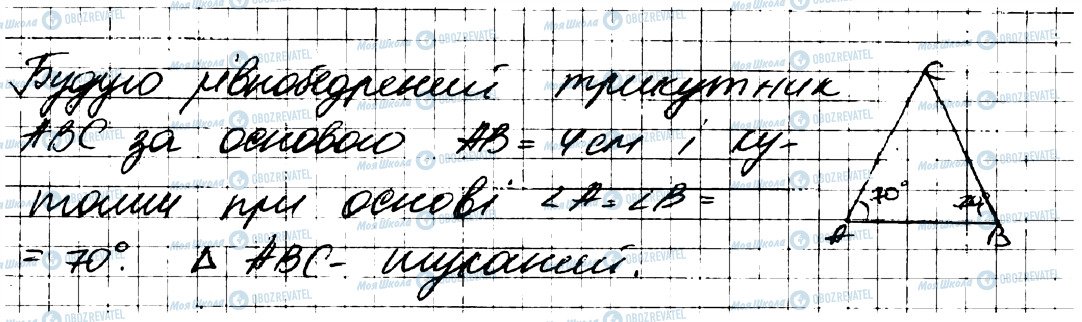 Будую рівнобедрений трикутник
ABC за основою AB = 4см і ку-
тами при основі ∠A = ∠B =
= 70°. Δ ABC - шуканий.
C
70°
A
B
Моя Школа OBOZREVATEL